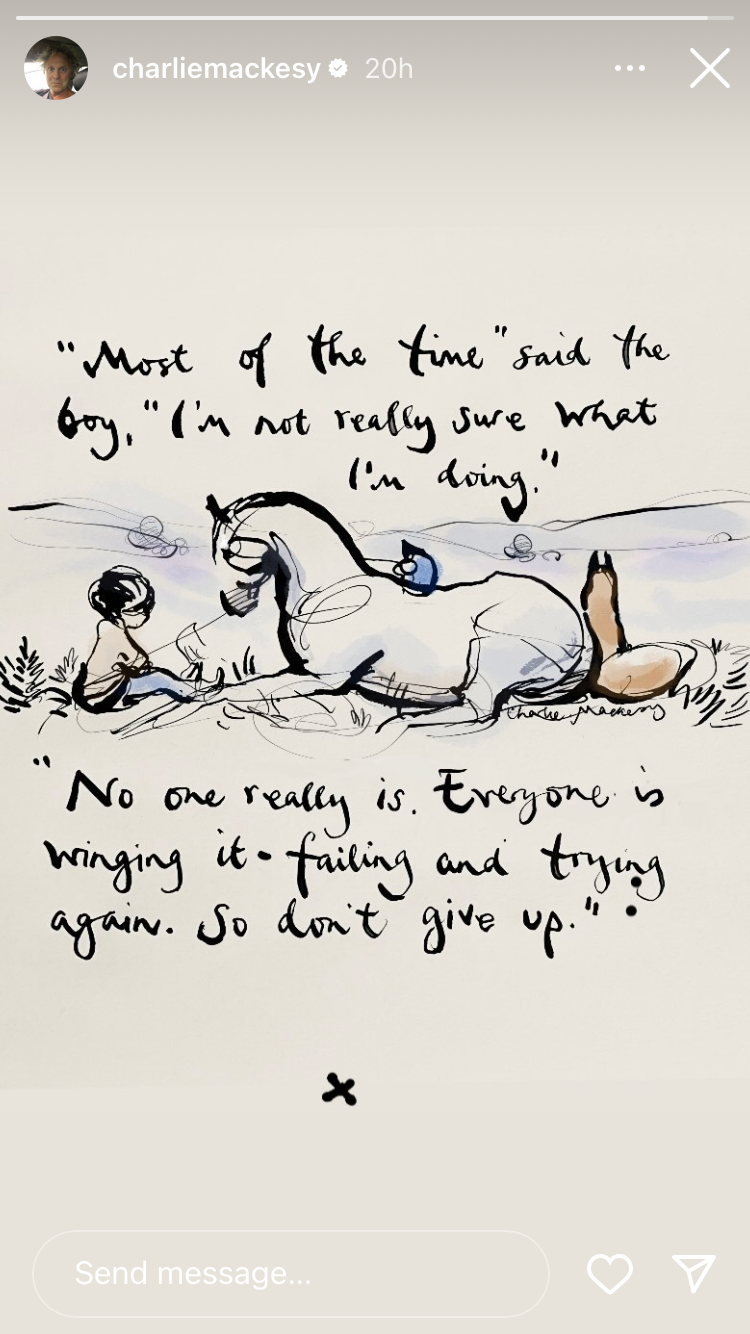 charliemackesy 20h
"Most of the time" said the
boy, "I'm not really sure what
I'm doing."
Charlie Mackesy
"No one really is. Everyone is
winging it - failing and trying
again. So don't give up."
Send message...